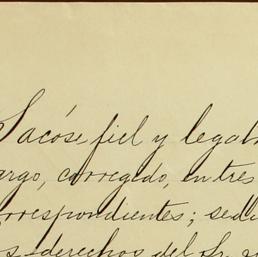 Sacóse fiel y legal
argo, corregido, en tres
orrespondientes; sedu
s derechos del Sr.